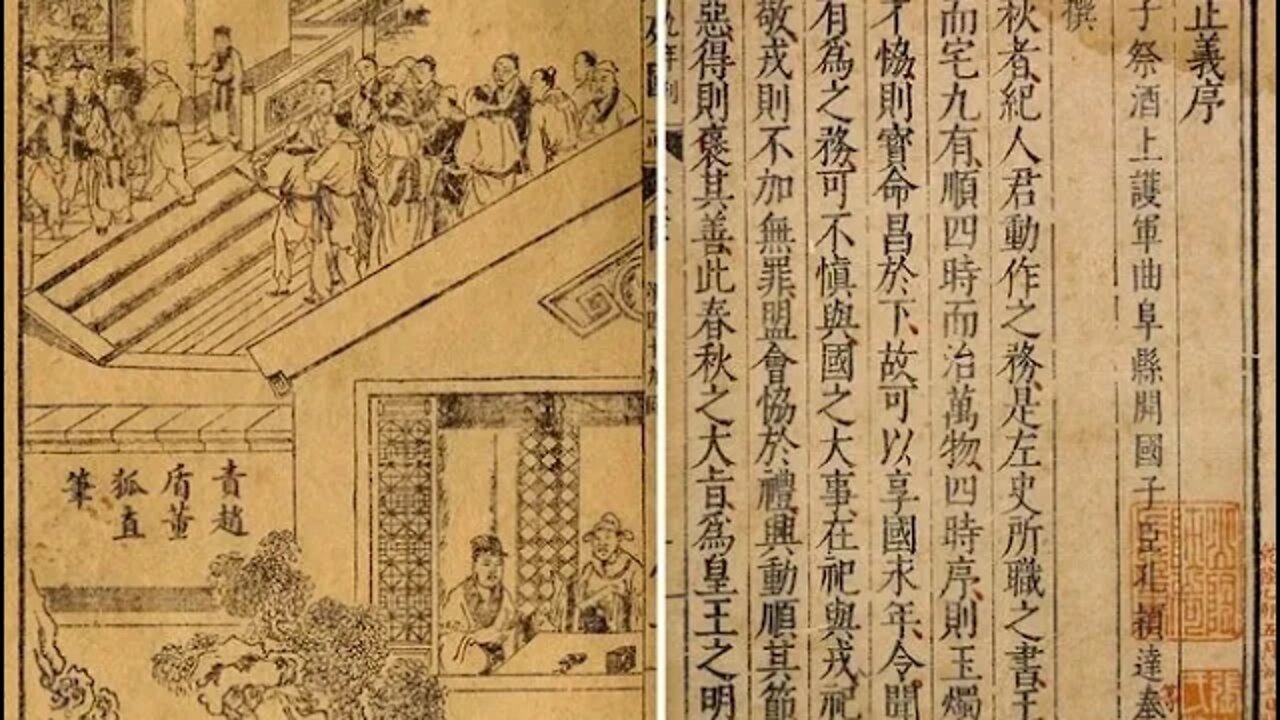 正義序
子祭酒上護軍曲阜縣開國子臣孔穎達奉
撰
秋者紀人君動作之務是左史所職之書王
而宅九有順四時而治萬物四時序則玉燭
才協則寶命昌於下故可以享國永年令聞
有為之務可不慎與國之大事在祀與戎祀
敬戎則不加無罪盟會協於禮興動順其節
惡得則褒其善此春秋之大旨為皇王之明
責趙
盾董
狐直
筆